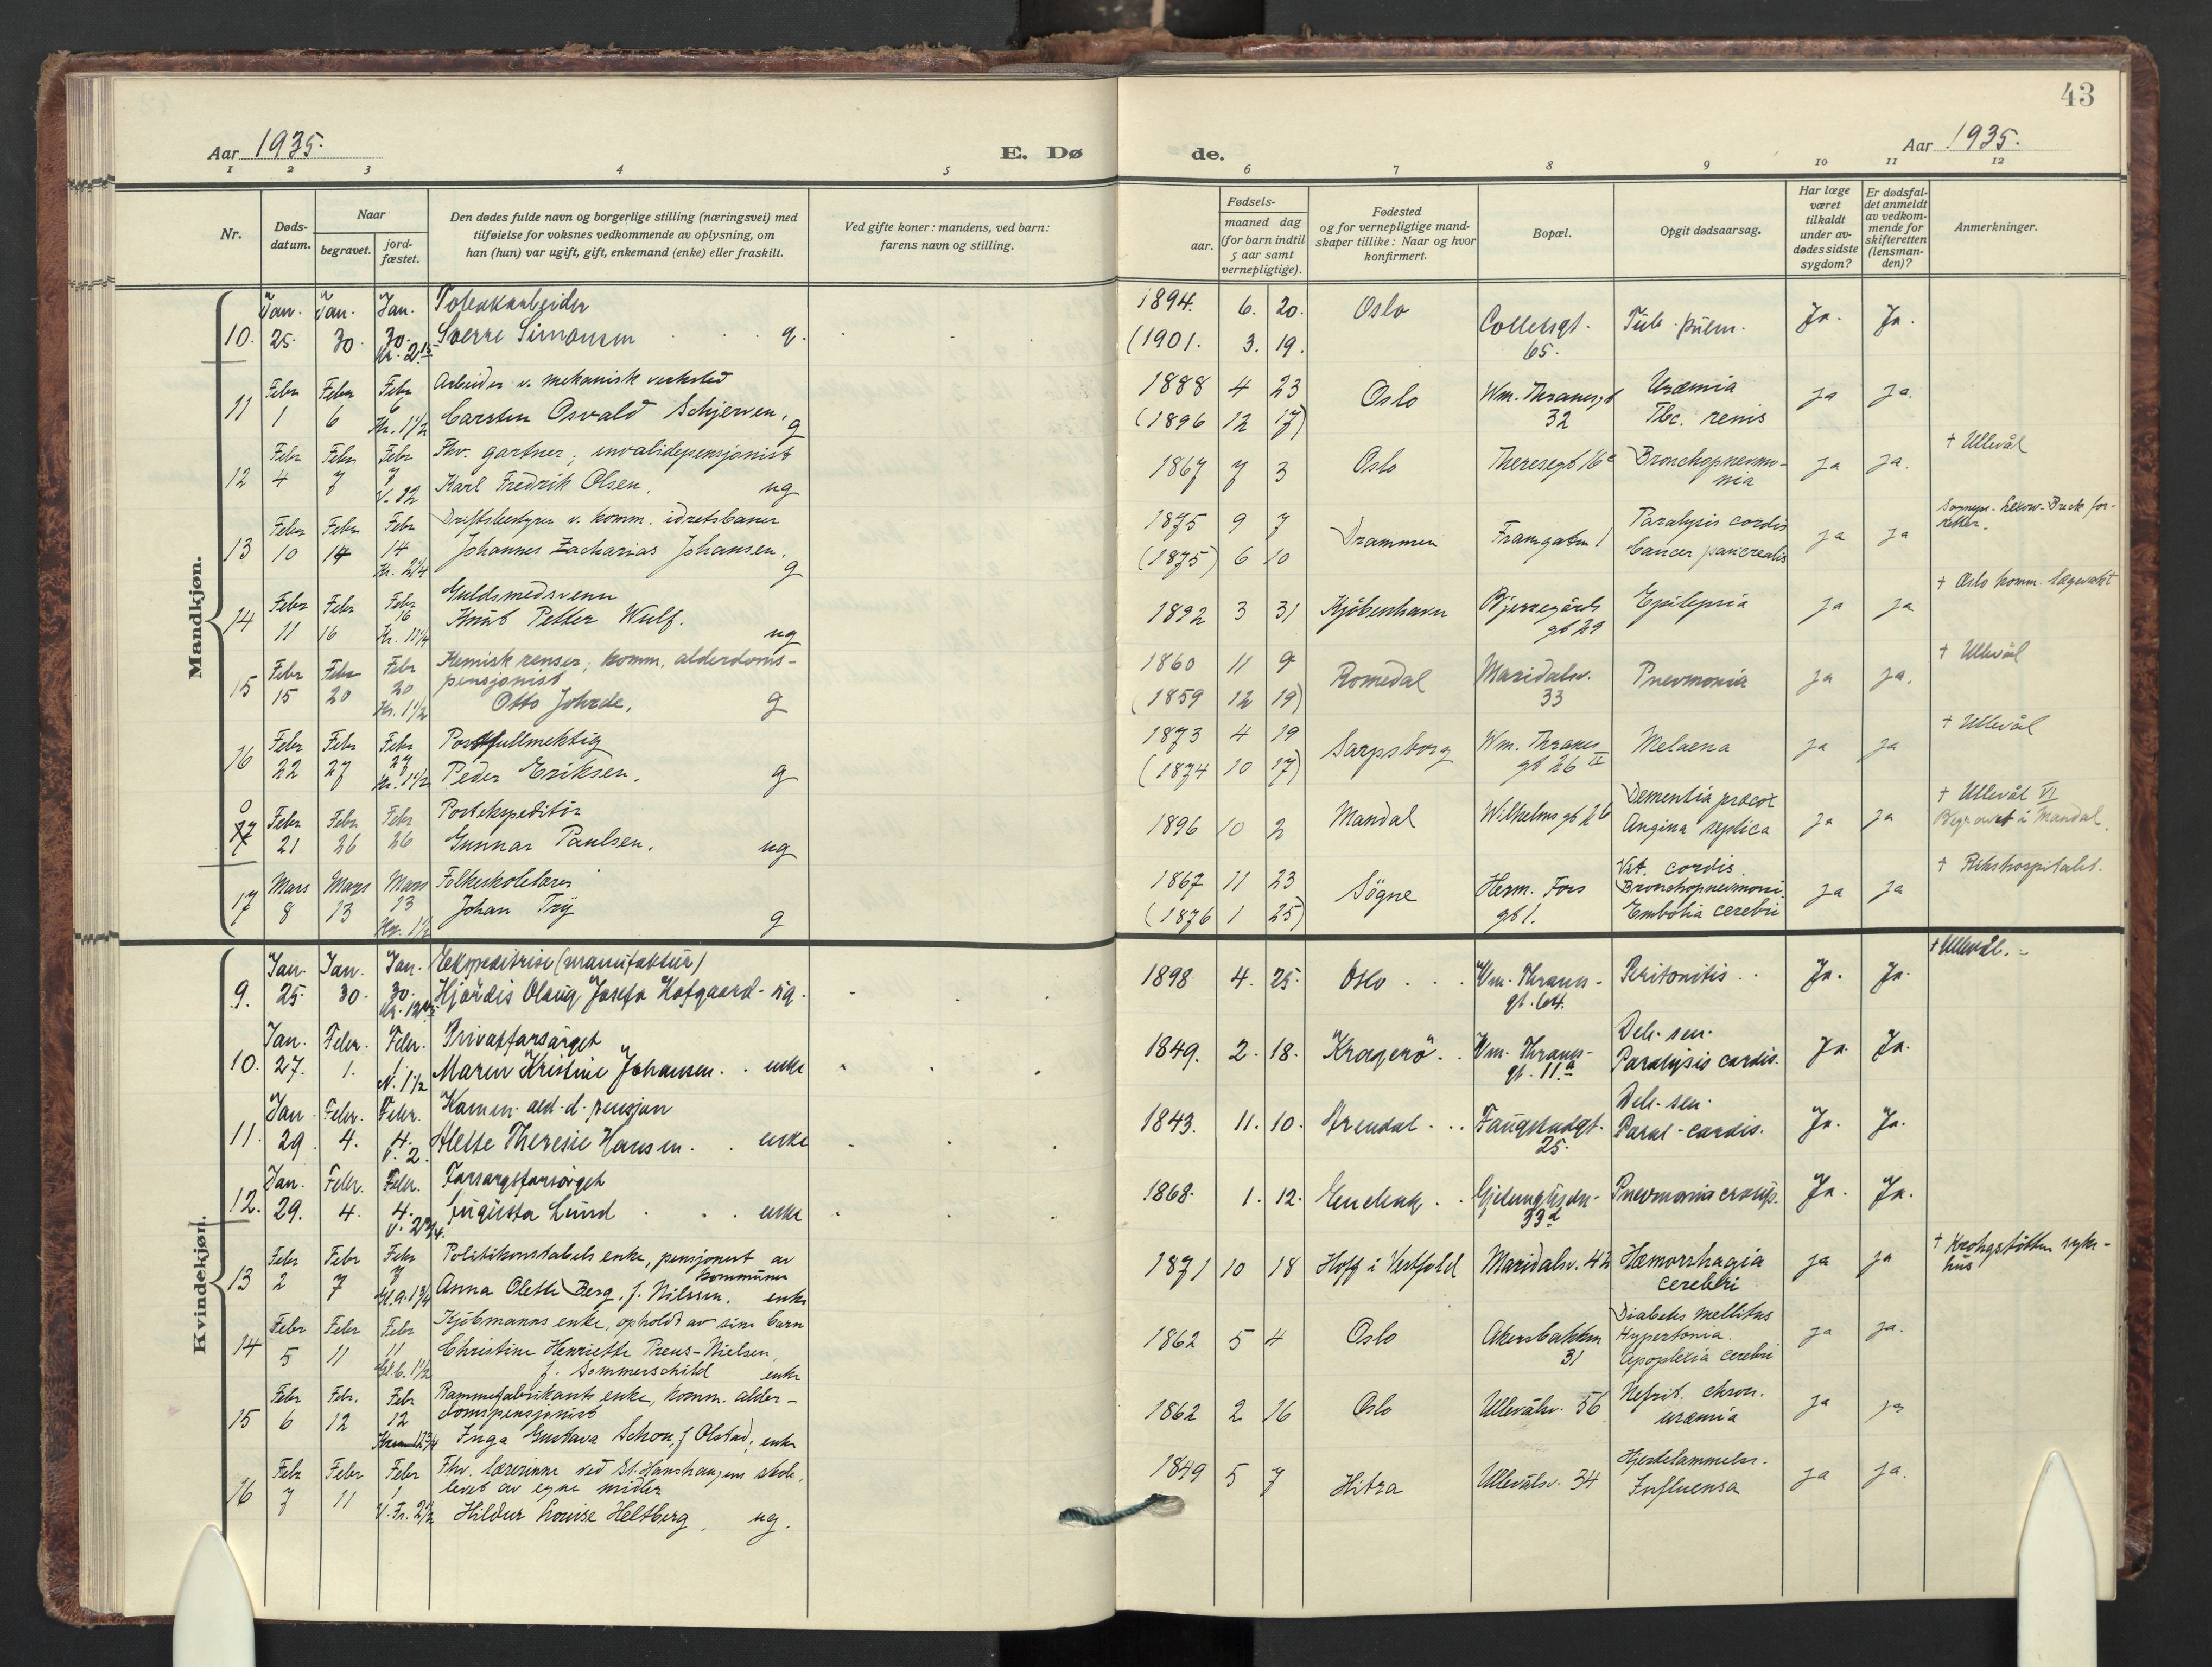 43
Aar 1935.
E. Dø
de.
Aar 1935.
1 2 3 4 5 6 7 8 9 10 11 12
Nr.
Døds-
datum.
Naar
begravet.
jord-
fæstet.
Den dødes fulde navn og borgerlige stilling (næringsvei) med
tilføielse for voksnes vedkommende av oplysning, om
han (hun) var ugift, gift, enkemand (enke) eller fraskilt.
Ved gifte koner: mandens, ved barn:
farens navn og stilling.
Fødsels-
aar.
maaned dag
(for barn indtil
5 aar samt
vernepligtige).
Fødested
og for vernepligtige mand-
skaper tillike: Naar og hvor
konfirmert.
Bopæl.
Opgit dødsaarsag.
Har læge
været
tilkaldt
under av-
dødes sidste
sygdom?
Er dødsfal-
det anmeldt
av vedkom-
mende for
skifteretten
(lensman-
den)?
Anmerkninger.
Mandkjøn.
Jan. Jan. Jan. Tobakkarbeider 1894. 6. 20. Oslo Colletsgt. Tub. pulm. Ja. Ja.
10. 25. 30. 30. Sverre Simonsen g. (1901. 3. 19. 65.
Febr Febr Febr Arbeider v. mekanisk verksted 1888 4 23 Oslo Wm. Thranesgt Uræmia ja ja.
11 1 6 6 Carsten Osvald Schjerven, g (1896 12 17) 32 Tbc. renis
Kr. 1 1/2
Febr Febr Febr Fhv. gartner, invalidepensjonist 1867 7 3 Oslo Theresegt 16c Bronchopnevmo- ja ja. † Ullevål
12 4 7 7 Karl Fredrik Olsen, ug nia
V. 12
Febr Febr Febr Driftsbestyrer v. komm. idretsbaner 1875 9 7 Drammen Framgaten 1 Paralysis cordis ja ja
13 10 14 14 Johannes Zacharias Johansen, g (1875) 6 10 Cancer pancreatis
Kr. 2 1/4
Febr Febr Febr Guldsmedsvenn 1892 3 31 Kjøbenhavn Bjerregårds Epilepsia ja ja † Oslo komm. lægevakt
14 11 16 16 Knut Petter Wulf. ug gt 29
Febr Febr Febr Kemisk renser, komm. alderdoms- 1860 11 9 Romedal Maridalsv. Pnevmonia ja ja. † Ullevål
15 15 20 20 pensjonist
Kr. 1 1/2 Otto Johrde, g (1859 12 19) 33
Febr Febr Febr Postfullmektig 1873 4 19 Sarpsborg Wm. Thranes Melaena ja ja † Ullevål
16 22 27 27 Peder Eriksen, g (1874 10 17) gt 26 II
Kr. 1 1/2
0 Febr Febr Febr Postekspeditør 1896 10 2 Mandal Wilhelms gt 2b Dementia præcox ja ja † Ullevål VI
17 21 26 26 Gunnar Paulsen, ug Angina septica Begravet i Mandal.
Mars Mars Mars Folkeskolelærer 1867 11 23 Søgne Herm. Foss Vit. cordis. ja ja † Rikshospitalet.
17 8 13 13 Johan Try g (1876 1 25) gt 1. Bronchopnevmoni
Kr. 1 1/2 Embolia cerebri
Kvindekjøn.
Jan. Jan. Jan. Ekspeditrise (manufaktur) 1898 4. 25. Oslo Wm. Thranes- Peritonitis Ja. Ja. † Ullevål.
9. 25 30. 30. Hjørdis Olaug Josefa Hofgaard - ug. gt. 64.
Jan. Febr. Febr. Privatforsørget 1849. 2. 18. Kragerø Wm. Thranes- Deb. sen. Ja. Ja.
10. 27. 1. 1. Maren Kristine Johansen. enke gt. 11.a Paralysis cordis.
V. 1 1/2
Jan. Febr. Febr. Komm. ald. d. pensjon 1843. 11. 10. Arendal Faugstadgt. Deb. sen. Ja. Ja.
11. 29. 4. 4. Alette Theresie Hansen. enke 25. Paral. cordis.
V. 2.
Jan. Febr. Febr. Forsorgsforsørget 1868. 1. 12. Enebak Pnevmonia croup. Ja. Ja.
12. 29. 4. 4. Augusta Lund enke 33d
Febr Febr Febr Politikonstabels enke, pensjonert av 1871 10 18 Hoff i Vestfold Maridalsv. 42 Hæmorrhagia ja ja † Krohgstøtten syke-
13 2 7 7 kommunen cerebri hus
Gl. A. 1 3/4 Anna Olette Berg, f. Nilssen. enke
Febr Febr Febr Kjøbmanns enke, opholdt av sine barn 1862 5 4 Oslo Akersbakken Diabetes mellitus ja ja.
14 5 11 11 Christine Henriette Preus-Nielsen, 31 Hypertonia.
f. Sommerschild enke Apoplexia cerebri
Febr Febr. Febr Rammefabrikants enke, komm. alder- 1862 2 16 Oslo Ullevålsv. 56 Nefrit. chron. ja ja
15 6 12 12 domspensjonist uræmia
Inga Gustava Schou, f Olstad, enke
Febr Febr Febr Fhv. lærerinne ved St. Hanshaugen skole, 1849 5 7 Hitra Ullevålsv. 34 Hjertelammelse. ja ja.
16 7 11 levet av egne midler Influensa
V. Fr. 2 1/2 Hildur Louise Heltberg, ug.